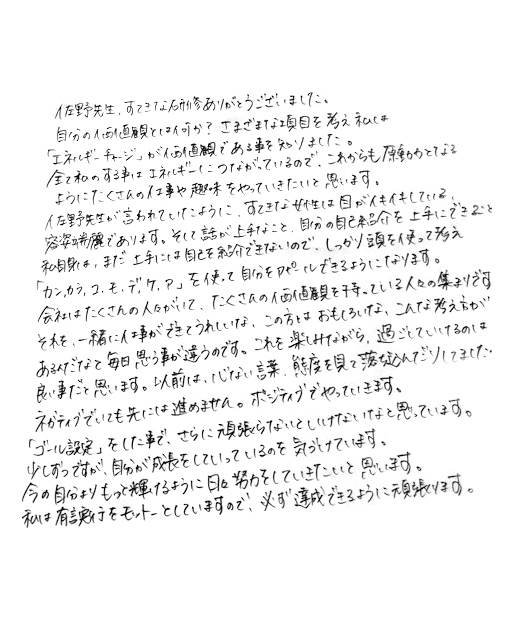 佐野先生、すてきな研修ありがとうございました。
自分の価値観とは何か？さまざまな項目を考え私は
「エネルギーチャージ」が価値観である事を知りました。
全て私のする事はエネルギーにつながっているので、これからも原動力となる
ようにたくさんの仕事や趣味をやっていきたいと思います。
佐野先生が言われていたように、すてきな女性は目がイキイキしている、
容姿端麗であります。そして話が上手なこと、自分の自己紹介を上手にできること
私自身は、まだ上手には自己を紹介できないので、しっかり頭を使って考え
「カ、カ、コ、モ、デ、ケ、ア」を使って自分をアピールできるようになります。
会社はたくさんの人々がいて、たくさんの価値観を持っている人々の集まりです
それを、一緒に仕事ができてうれしいな、この方はおもしろいな、こんな考え方が
あるんだなと毎日思う事が違うのです。これを楽しみながら、過ごしていけるのは
良い事だと思います。以前は、心ない言葉、態度を見て落ち込んだりしてました
ネガティブでいても先には進めません。ポジティブでやっていきます。
「ゴール設定」をした事で、さらに頑張らないといけないなと思っています。
少しずつですが、自分が成長をしていっているのを気づけています。
今の自分よりもっと輝けるように日々努力をしていきたいと思います。
私は有言実行をモットーとしていますので、必ず達成できるように頑張ります。